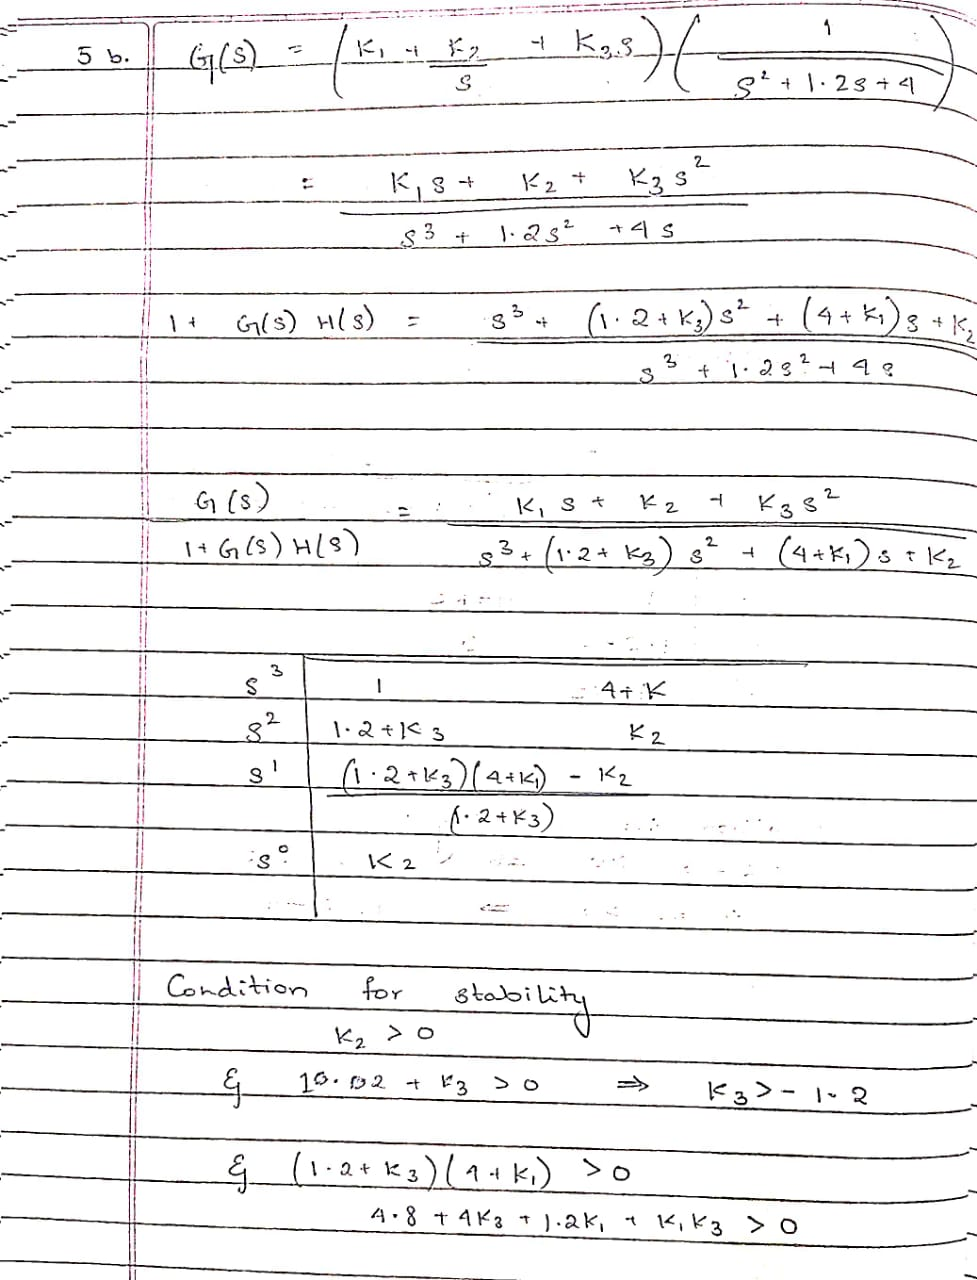 5 b. G(s) = (K₁ + K₂/s + K₃s) (1/(s² + 1.2s + 4))
= (K₁s + K₂ + K₃s²)/(s³ + 1.2s² + 4s)
1 + G(s) H(s) = (s³ + (1.2 + K₃)s² + (4 + K₁)s + K₂)/(s³ + 1.2s² + 4s)
G(s)/(1 + G(s) H(s)) = (K₁s + K₂ + K₃s²)/(s³ + (1.2 + K₃)s² + (4 + K₁)s + K₂)
s³ | 1 4 + K
s² | 1.2 + K₃ K₂
s¹ | ((1.2 + K₃)(4 + K₁) - K₂)/(1.2 + K₃)
s⁰ | K₂
Condition for stability
K₂ > 0
& + K₃ > 0 ⇒ K₃ > - 1.2
& (1.2 + K₃)(4 + K₁) > 0
4.8 + 4K₃ + 1.2K₁ + K₁K₃ > 0